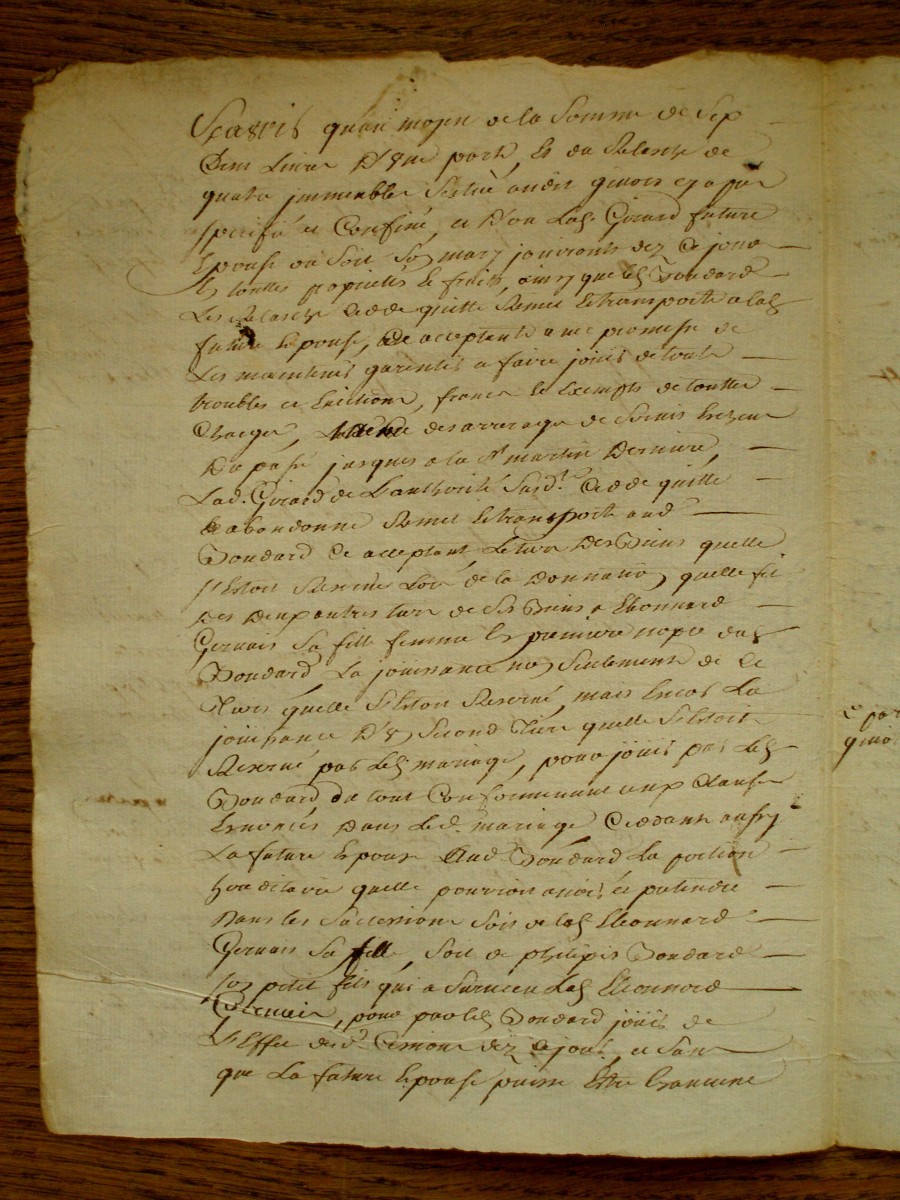 Scavoir quau moyen de la Somme de Sep
Cens Livres D'une part, Et du Relasche de
quatre immeubles Scitué audit
specifié et Confiné, et D'ou Lad. Girard future
Epouse ou Soit Son mary jouiront dez Ce jour
En touttes proprietés Et fruits, ainsy que led. Boudard
Les Relasche Cedde quitte Remet Et transporte a lad.
future Epouse, Ce acceptante avec promesse de
Les maintenir garentir et faire jouir de touts
troubles et Evictions, francs Et Exempts de touttes
Charges, des arrerages de Servis
Du passé jusques a la St martin Derniere,
Lad. Girard de Lauthorité Susd.t Cedde quitte
Et abandonne Remet Et transporte aud.
Boudard Ce acceptant Le tiers Des Biens quelle
s'Estoit Reservée Lors de la Donnation quelle fit
Des Deux autres tiers de Ses Biens a Eleonnard
Gervais Sa fille femme En premiere nopce dud.
Boudard, La jouissance non Seulement de Ce
tiers quelle S'Estoit Reservé, mais Encor La
jouissance D'un Second tiers quelle S'Estoit
Reservé par Led. mariage, pour jouir par Led.
Boudard du tout Conformement aux Clauses
Enoncés Dans Led. mariage Cedant aussy
La future Epouse Aud. Boudard La portion
hereditaire quelle pourroit avoir et pretendre
Dans les Successions Soit de lad. Eleonnard
Gervais Sa fille, Soit de philipes Boudard
son petit fils qui a Survecu Lad. Eleonnord
Gervais, pour par led. Boudard jouir de
L'Effet desd. Cessions dez Ce jour, et Sans
que La future Epouse puisse Estre